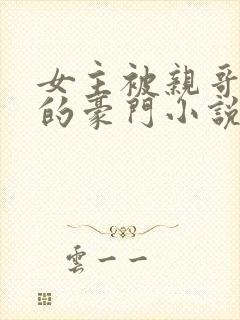 女主被親哥
的豪門小説
雲一一